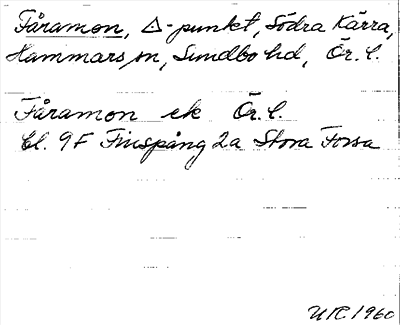 Fåramon, △-punkt, Södra Kärra,
Hammars sn, Sundbo hd, Ör. l.
Fåramon ek Ör. l.
bl. 9F Finspång 2a Stora Forsa
1960